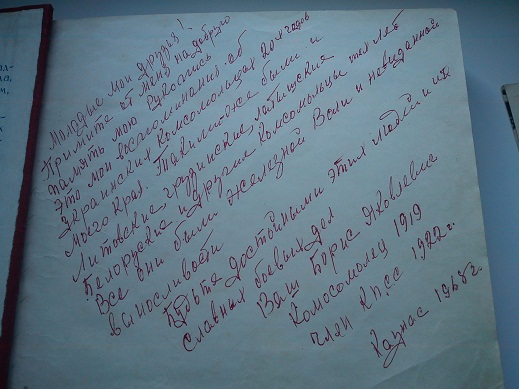 Молодые мои друзья!
Примите от меня на добрую
память мою рукопись
Это мои воспоминания об
украинских комсомольцах 20х годов
моего края. Такими же были и
Литовские, грузинские, латышские
Белоруские и другие комсомольцы тех лет
Все они были железной воли и невиданной
выносливости
Будьте достойными этих людей и их
славных боевых дел
Ваш Борис Яковлевич
Комсомолец 1919
член КПСС 1922 г.
Каунас 1965 г.